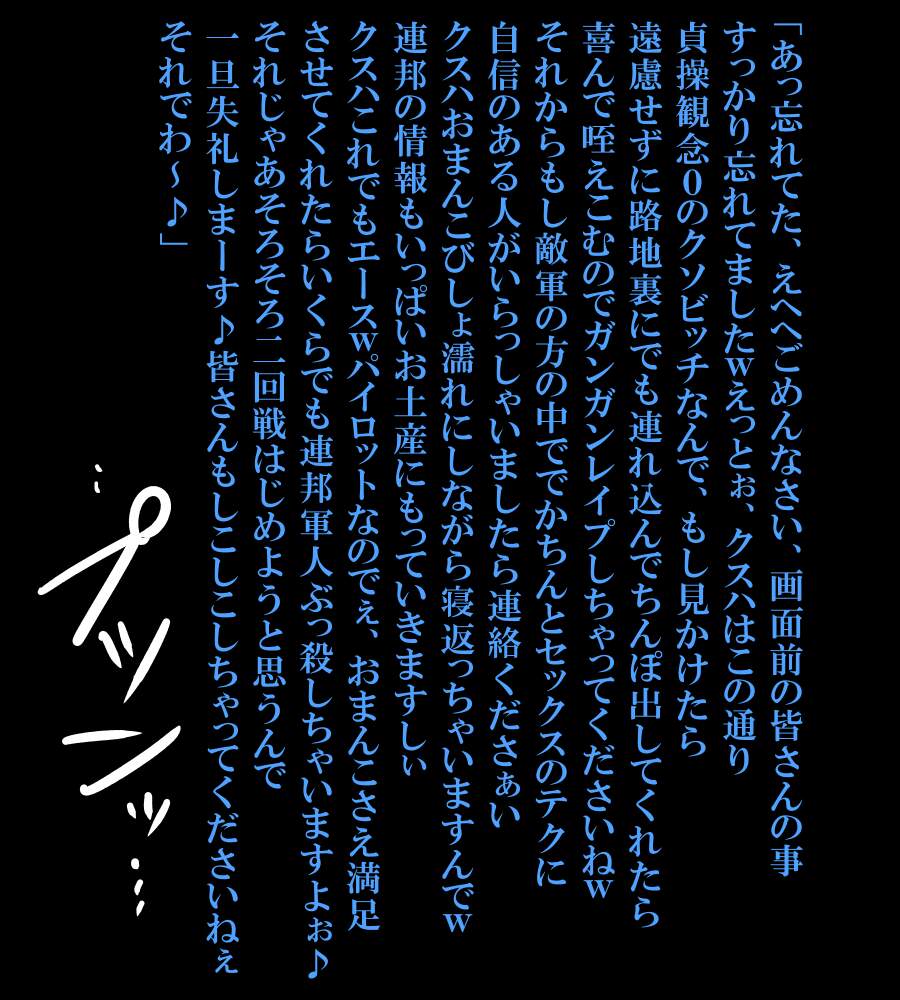 「あっ忘れてた、えへへごめんなさい、画面前の皆さんの事
すっかり忘れてましたwえっとぉ、クスハはこの通り
貞操観念0のクソビッチなんで、もし見かけたら
遠慮せずに路地裏にでも連れ込んでちんぽ出してくれたら
喜んで咥えこむのでガンガンレイプしちゃってくださいねw
それからもし敵軍の方の中ででかちんとセックスのテクに
自信のある人がいらっしゃいましたら連絡くださぁい
クスハおまんこびしょ濡れにしながら寝返っちゃいますんでw
連邦の情報もいっぱいお土産にもっていきますしぃ
クスハこれでもエースwパイロットなのでぇ、おまんこさえ満足
させてくれたらいくらでも連邦軍人ぶっ殺しちゃいますよぉ♪
それじゃあそろそろ二回戦はじめようと思うんで
一旦失礼しまーす♪皆さんもしこしこしちゃってくださいねぇ
それでわ～♪」
…プッツンッ…